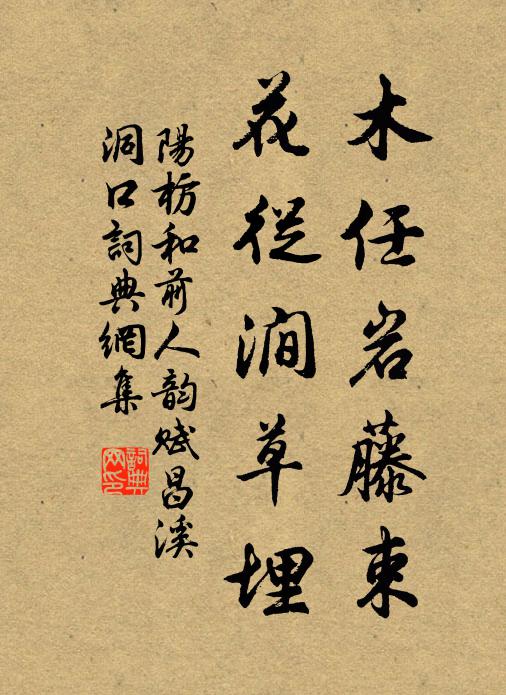 木任岩藤束
花從澗草埋
陽枋和前人韵賦昌溪
洞口詞典網集
詞典網印